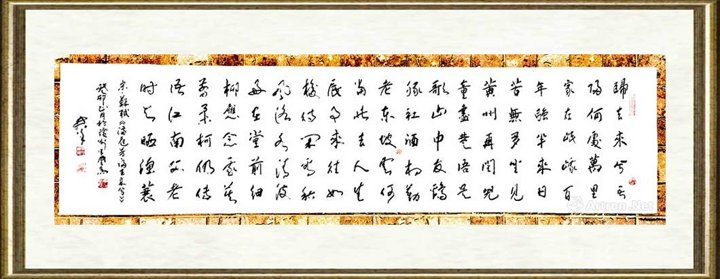 歸去來兮吾
歸何處萬里
家在岷峨百
年强半來日
苦無多坐見
黄州再閏兒
童盡楚語吳
歌山中友鷄
豚社酒相勸
老東坡云何
當此去人生
底事來往如
梭待閑看秋
風洛水清波
好在堂前細
柳應念我莫
剪柔柯仍傳
語江南父老
时与晒漁蓑
宋蘇軾《滿庭芳歸去來兮》
Artron.Net